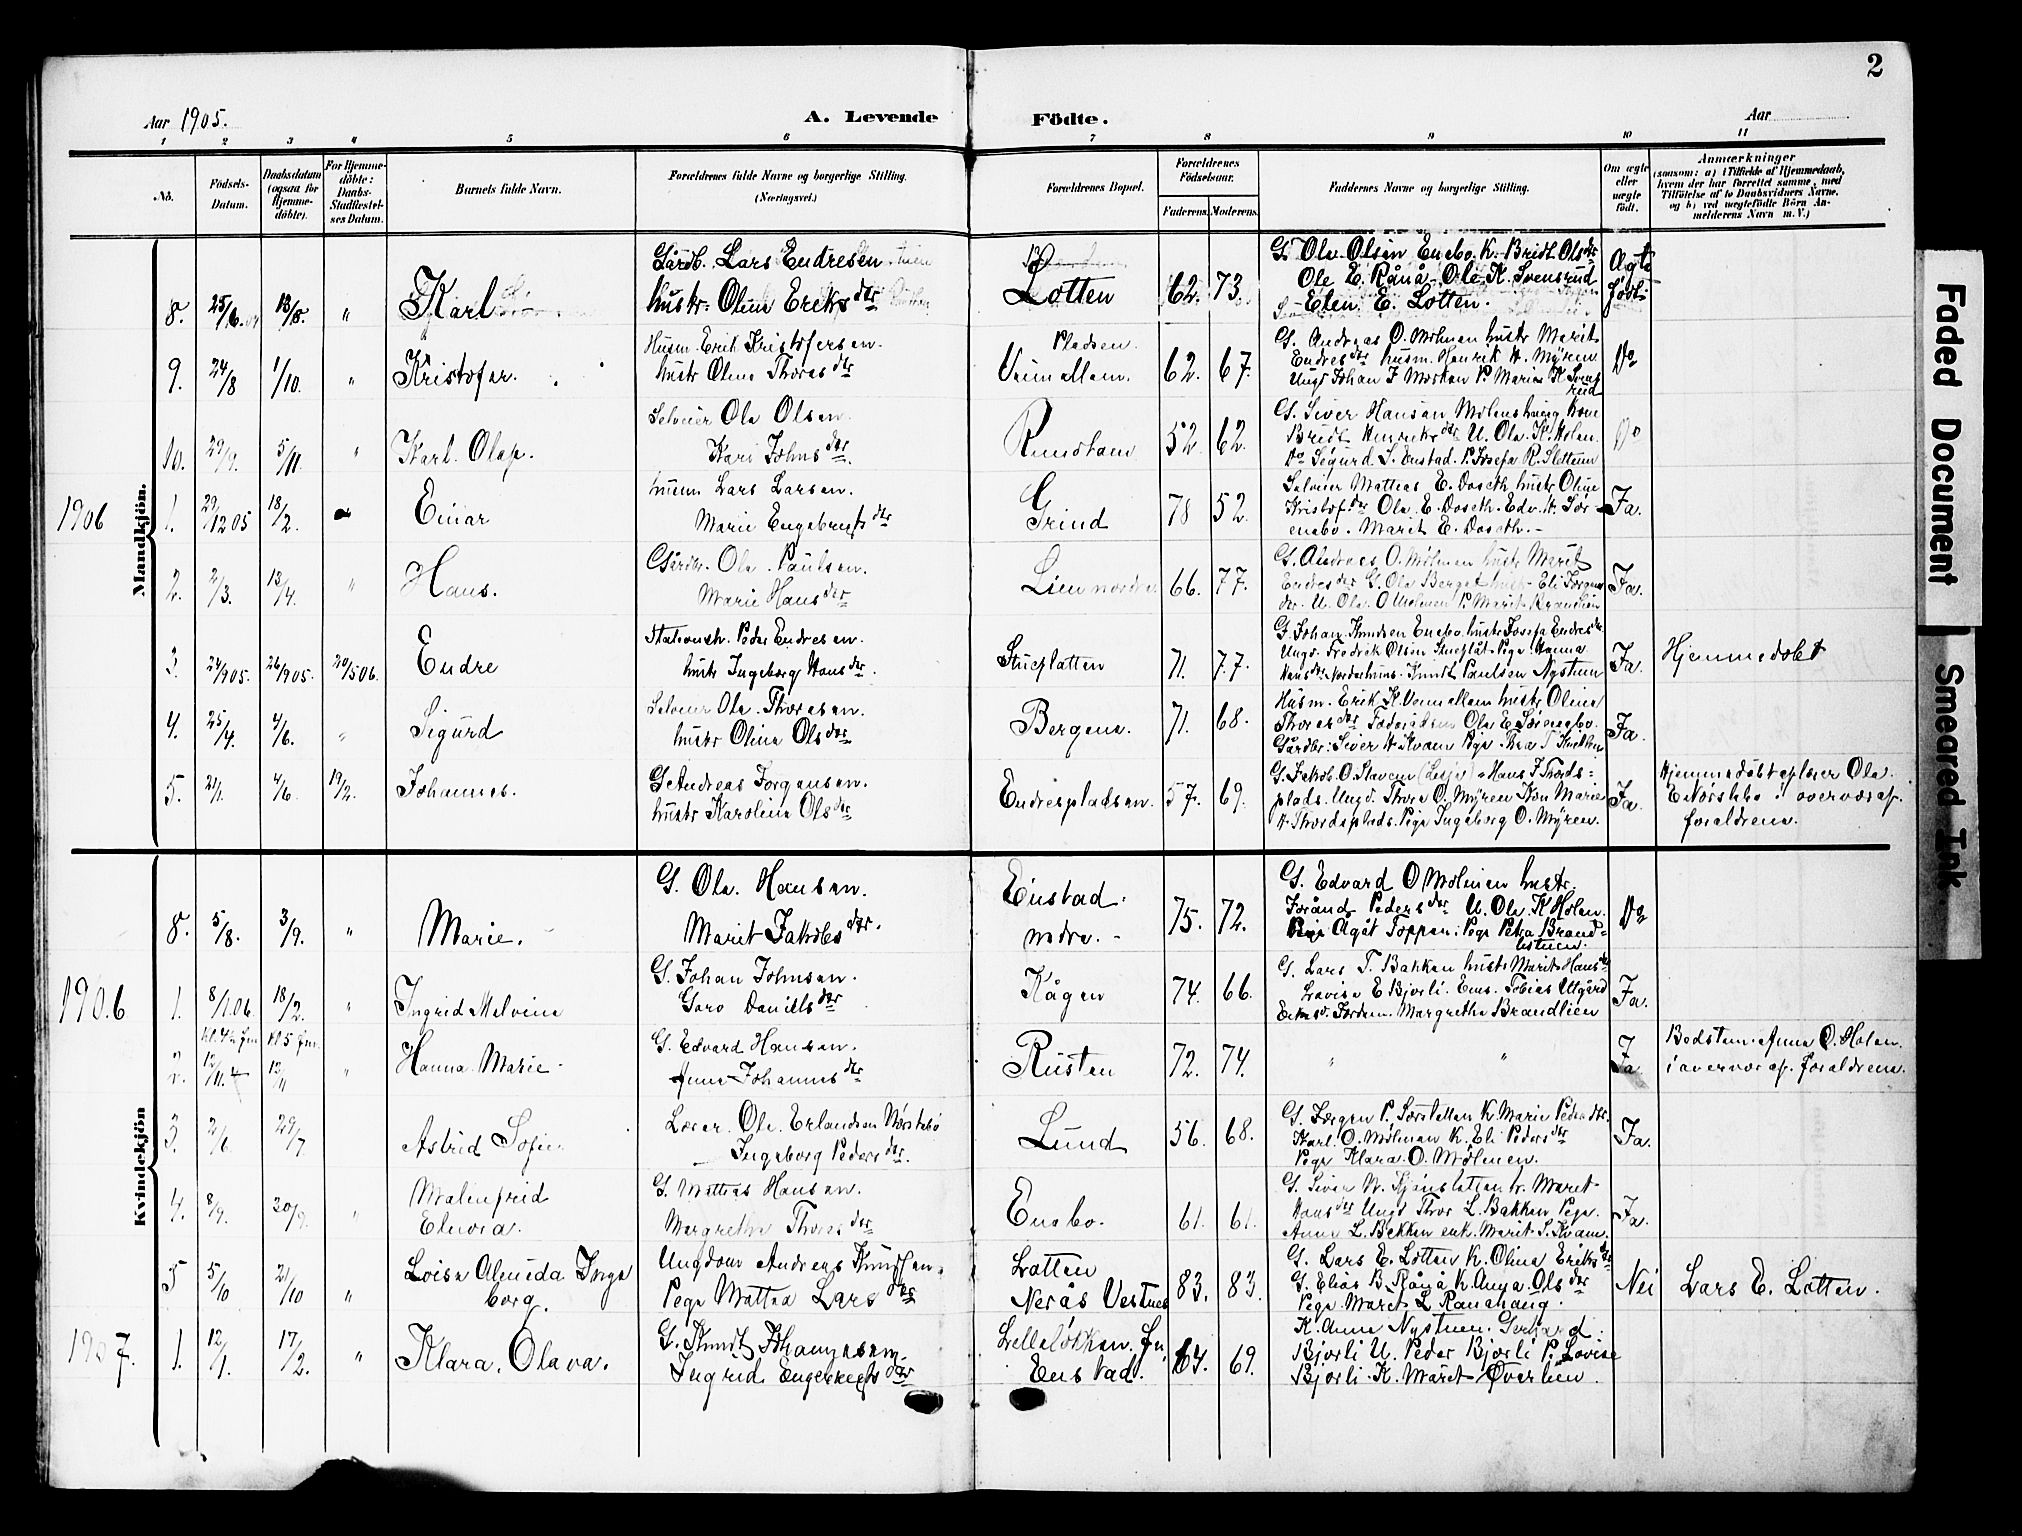 2
Aar 1905.
A. Levende Födte.
Aar
1 2 3 4 5 6 7 8 9 10 11
No.
Födsels-Datum.
Daabsdatum (ogsaa for Hjemme-döbte).
For Hjemme-döbte: Daabs-Stadfæstel-ses Datum.
Barnets fulde Navn.
Forældrenes fulde Navne og borgerlige Stilling.
(Næringsvei.)
Forældrenes Bopæl.
Forældrenes Födselsaar.
Faderens. Moderens.
Faddernes Navne og borgerlige Stilling.
Om ægte eller uægte födt.
Anmærkninger
(saasom: a) i Tilfælde af Hjemmedaab,
hvem der har forrettet samme, med
Tilföielse af to Daabsvidners Navne.
og b) ved uægtefödte Börn An-
melderens Navn m. V.)
Mandkjön.
8. 25/6 13/8. " Karl
Gårdb. Lars Endresen
hustr. Olina Eriksdtr
Lotten 62. 73.
G. Ola Olsen Enebo K. Bridt Olsdtr
Ole E. Rånå Ole K. Svensrud
Elen E. Lotten.
Ægte födt
9. 24/8 1/10. " Kristofer.
Husm. Erik Kristofersen.
hustr Olina Thorasdtr
Pladsen
62. 67.
G. Andreas O. Mölmen hustr Marit
Endresdtr husm. Henrik H. Myren
Ungd Johan J Morken P. Marie K Svens
rud
Do
10. 29/9. 5/11. " Karl Olaf.
Selveier Ola Olsen.
Kari Johnsdtr.
52. 62.
G. Siver Hansen Mölmshaug Kone
Bridt Henriksdtr U. Ola K. Holen
Do Sigurd S. Enstad. P. Josefa R. Slettum
Do
1906
1. 29/12 05 18/2. Einar
husm Lars Larsen.
Marie Engebregtsdtr
Grind 78 52.
Selveier Mattias E. Doseth hustr Oline
Kristofdtr Ola E. Doseth. Edv. H. Sör-
enebo. Marit E. Doseth.-
Ja.
2. 2/3. 13/4. " Hans.
Gårdbr. Ola Paulsen.
Marie Hansdtr
Lien nordre 66. 77.
G. Andreas O. Mölmen hustr Marit
Endresdtr G. Ola Berget hustr Eli Jörgens
dtr. U. Ola O Mölmen P. Marit Brandlien
Ja.
3. 24/905. 26/905. 20/506. Endre
Stationsk. Peder Endresen.
hustr Ingeborg Hansdtr.
Stueplatten 71. 77.
G. Johan Knudsen Enebo hustr Josefa Endresdtr
Ungd. Fredrik Olsen Stueplat. Pige Hanna
Hansdtr Nordenhus. Knudt Paulsen Nystuen
Ja. Hjemmedöbt
4. 25/4. 4/6. " Sigurd
Selveier Ola Thoresen.
hustr Olina Olsdtr
Bergene. 71. 68.
Husm. Erik K. hustr Olina
Thorasdtr Ola E Sörenebo.
Gårdbr: Siver H Kvam Pige Thea T
Ja.
5. 21/1. 4/6. 19/2. Johannes.
G. Andreas Jörgensen.
hustr Karolina Olsdtr
Endrespladsen. 57. 69.
G. Jakob O. Staven (Lesje) Hans J Thords=
plads. Ungd. Thore O. Myren Kon Marie
H. Thordsplads. Pige Ingeborg O. Myren.
Ja. Hjemmedöbt af lærer Ola
E Nörstebö i overvær af
foraldrene.
Kvindekjön
8. 5/8. 3/9. " Marie.
G. Ola. Hansen.
Marit Jakobsdtr.
Enstad
nedre.- 75. 72.
G. Edvard O Mölmen hustr.
Jöränd Pedersdtr U. Ola K Holen.
Pige Ågåt Toppen. Pige Petra Brand=
lstuen.
Do
1906
1. 8/1.06. 18/2. " Ingrid Melvina
G. Johan Johnsen.
Goro Danielsdtr
Kågen 74. 66.
G. Lars T. Bakken hustr Marit Hansdtr
Lovise E Bjorli. Enk. Tobias Utgård
Margrethe Brandlien
Ja.
2. kl. 4 fm 12/11. kl 5 fm. 12/11 " Hanna Marie
G. Edvard Hansen.
Anne Johannesdtr
Rusten 72. 74.
" "
Ja. Bedstem. Anne O. Holen.
i overvær af foraldrene.
3. 2/6. 29/7. Astrid Sofie.
Lærer. Ole Erlandsen Nörstebö
Ingeborg Pedersdtr.
Lund 56. 68.
G. Jörgen P. Sörsletten K. Marie Pedersdtr.
Karl. O. Mölmen K. Eli Pedersdtr
Pige Klara. O. Mölmen.
Ja.
4. 8/9. 30/9. " Malenfrid
Elnora.
G. Mattias Hansen.
Margrethe Thorasdtr
Enebo. 61. 61.
G. Siver H. h. Maret
Hansdtr Ungd Thor L. Bakken Pige
Anne L. Bekken enk. Marit S. Kvam.
Ja.
5 5/10 21/10 " Loisa Almida Inge
borg.
Ungdom Andreas Knudsen.
Pige Mattea Larsdtr
Lotten
Nerås Vestnes 83. 83.
G. Lars E. Lotten K. Olina Eriksdtr
G. Elias B. Rånå K. Anna Olsdtr
Pige Maret L Ranahaug.
Nei Lars E. Lotten.
1907.
1. 12/1. 17/2. " Klara. Olava.
G. Knudt Johannesen.
Ingrid Engebregtsdtr
Lellelökken
Enstad. 64. 69.
K. Anne Nystuen. Gerhard
Bjorli U. Peder Bjorli P. Lovise
Bjorli K. Maret Överlien.
Faded Document
Smeared Ink.